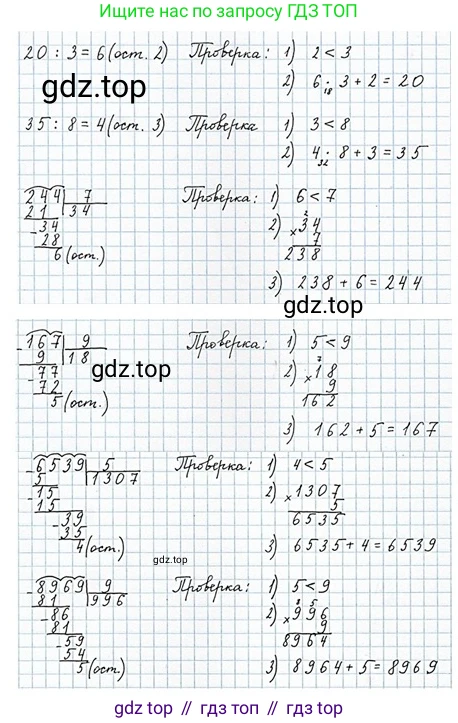 Ищите нас по запросу ГДЗ ТОП
20 : 3 = 6 (ост. 2) Проверка: 1) 2 < 3
2) 6 · 3 + 2 = 20
18
gdz.top
35 : 8 = 4 (ост. 3) Проверка 1) 3 < 8
2) 4 · 8 + 3 = 35
32
244 7 Проверка: 1) 6 < 7
21 34 2) × 34
2
- 34 7
28 238
6 (ост.) 3) 238 + 6 = 244
gdz.top
- 167 9 Проверка: 1) 5 < 9
9 18 2) × 18
7
- 77 9
72 162
5 (ост.) 3) 162 + 5 = 167
gdz.top
- 6539 5 Проверка: 1) 4 < 5
5 1307 2) × 1307
- 15 5
15 6535
- 39 3) 6535 + 4 = 6539
35
4 (ост.)
gdz.top
- 8969 9 Проверка: 1) 5 < 9
81 996 2) × 996
8 5
- 86 9
81 8964
- 59 3) 8964 + 5 = 8969
54
5 (ост.)
gdz.top // gdz.top // gdz.top